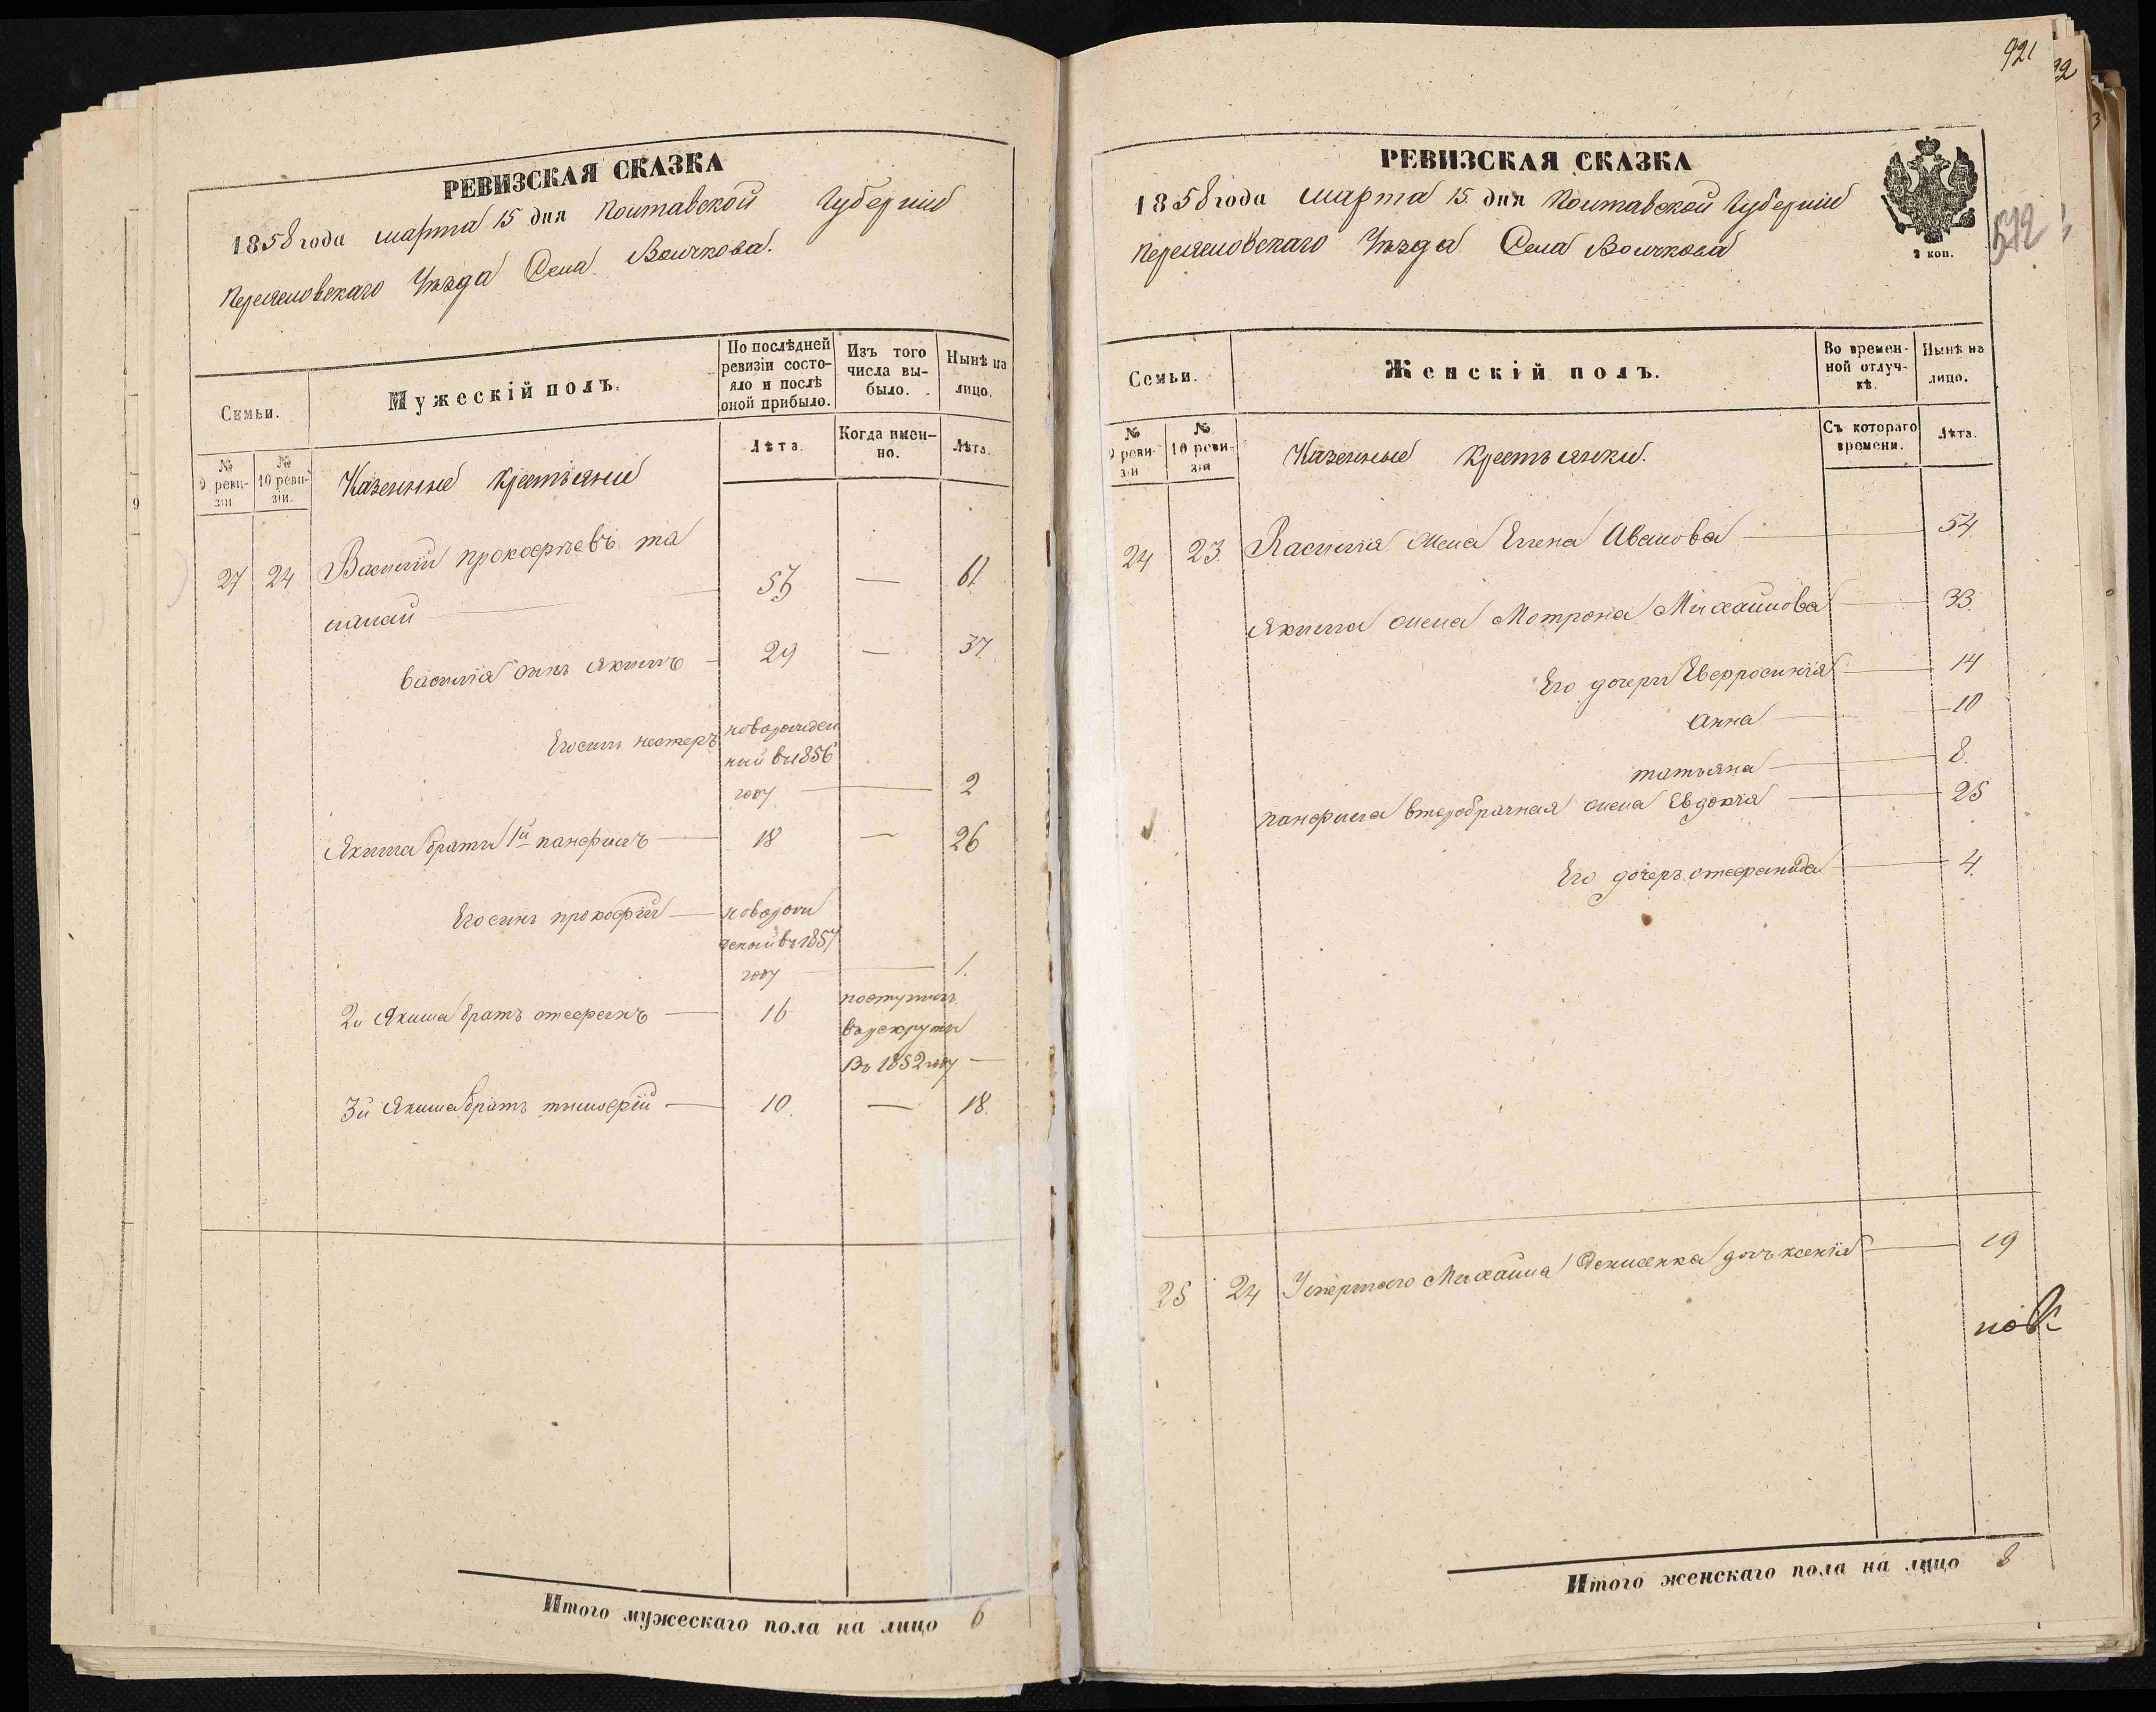 РЕВИЗСКАЯ СКАЗКА
1858 года марта 15 дня Полтавской Губернии
Переяславскаго Уезда Села Волчкова.
Семьи.
Мужескій полъ.
По послѣдней
ревизіи состо-
яло и послѣ
оной прибыло.
Изъ того
числа вы-
было.
Нынѣ на
лицо.
№
9 реви-
зіи
№
10 реви-
зіи.
Казенные крестьяне
Лѣта.
Когда имен-
но.
Лѣта.
27 24 Василий прокофьевъ та
57 — 61.
василія сынъ Якимъ — 29 — 37.
Его сынъ нестеръ новорожден
ний в 1856
году — 2
Якима братъ 1й панфилъ — 18 — 26
Его сынъ прокофий — новорож
деный въ 1857
году — 1.
2й Якима братъ стефанъ — 16 поступилъ
в рекруты
въ 1852 году —
3й Якима братъ тимофій — 10. — 18.
Итого мужескаго пола на лицо 6
921
22
3
9
РЕВИЗСКАЯ СКАЗКА
1858 года марта 15 дня Полтавской Губернии
Переяславскаго Уезда Села Волчкова
2 коп.
512
Семьи.
Женскій полъ.
Во времен-
ной отлуч-
кѣ.
Нынѣ на
лицо.
№
9 реви-
зіи
№
10 реви-
зіи
Казенные крестьянки.
Съ котораго
времени.
Лѣта.
24 23. Василия жена Елена Иванова — 54
Якима жена Мотрона Михайлова — 33.
Его дочери Евфросинія — 14
Анна — 10
татьяна — 8.
панфила второбрачная жена Евдокія — 25
Его дочеръ стефанида — 4.
25 24 Умершаго Михайла Денисенка дочъ ксенія — 19
Итого женскаго пола на лицо 8